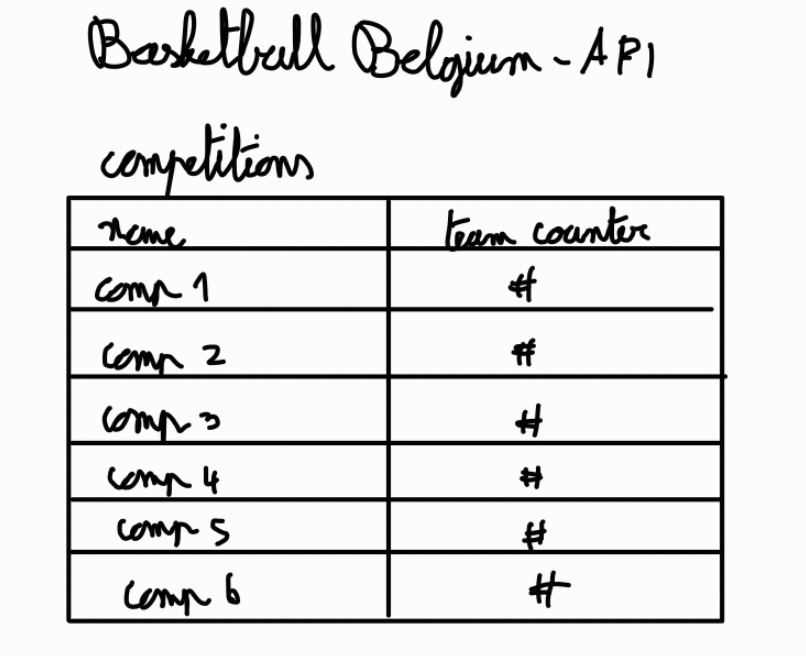 Basketball Belgium - API
competitions
name team counter
comp 1 #
comp 2 #
comp 3 #
comp 4 #
comp 5 #
comp 6 #